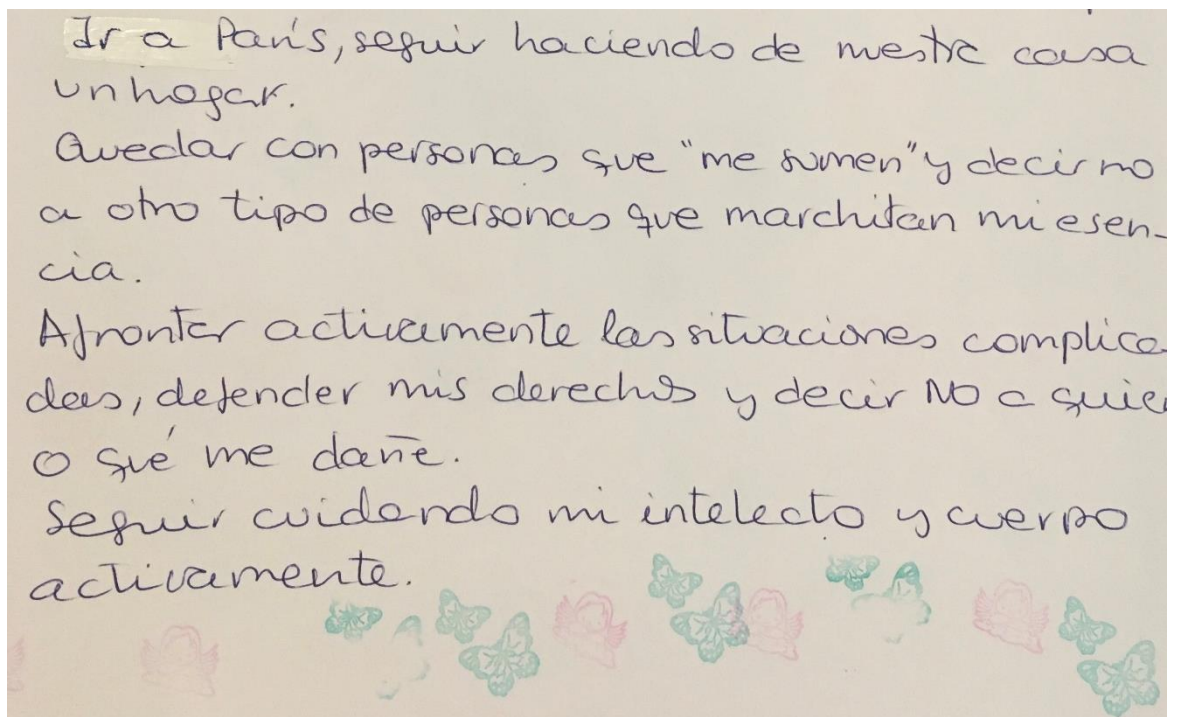 Ir a París, seguir haciendo de nuestra casa
un hogar.
Quedar con personas que "me sumen" y decir no
a otro tipo de personas que marchitan mi esen-
cia.
Afrontar activamente las situaciones complica
das, defender mis derechos y decir NO a quie
o qué me dañe.
Seguir cuidando mi intelecto y cuerpo
activamente.